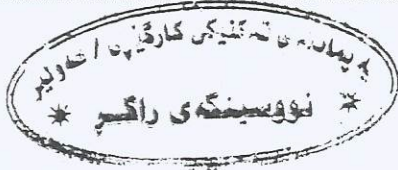 پەیمانگەی تەکنیکی کارگێڕی / هەولێر
نووسینگەی راگر